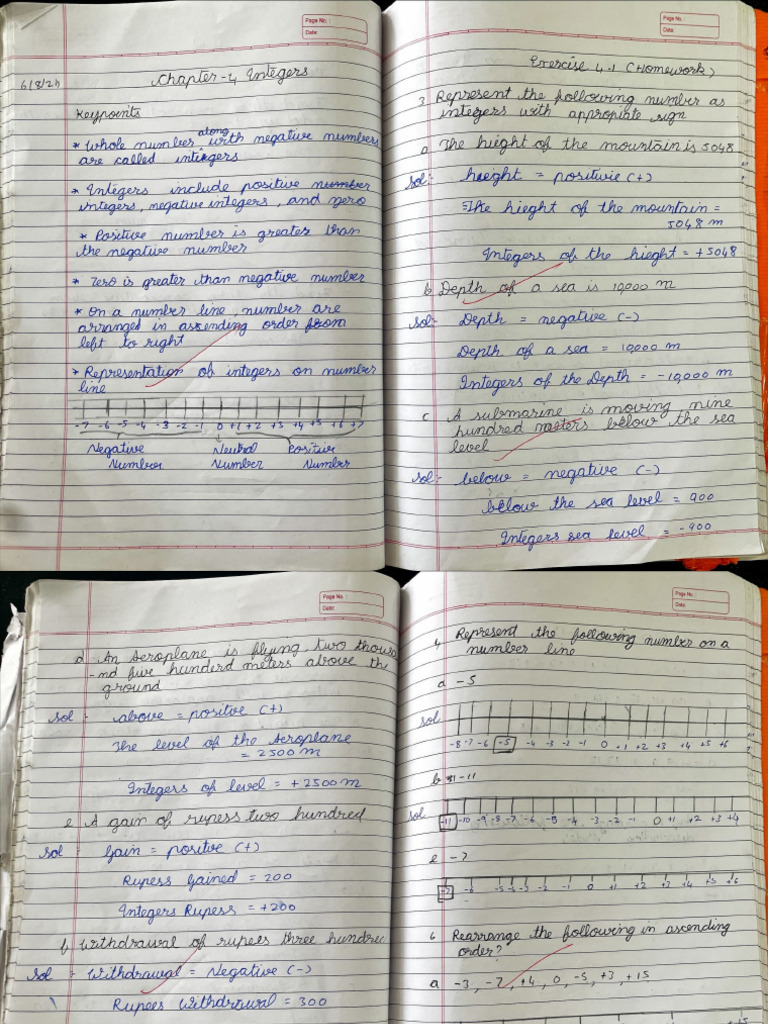 Page No.
Date:
6/8/24
Chapter-4 Integers
Keypoints
* Whole number along with negative numbers
are called integers
* Integers include positive number
integers, negative integers, and zero
* Positive number is greater than
the negative number
* Zero is greater than negative number
* On a number line, number are
arranged in ascending order from
left to right
* Representation of integers on number
line
-7 -6 -5 -4 -3 -2 -1 0 +1 +2 +3 +4 +5 +6 +7
Negative Neutral Positive
Number Number Number
Page No.
Date:
Exercise 4.1 (Homework)
3 Represent the following number as
integers with appropiate sign
a The hieght of the mountain is 5048
Sol:- hieght = positive (+)
The hieght of the mountain =
5048 m
Integers of the hieght = +5048
b Depth of a sea is 10,000 m
Sol:- Depth = negative (-)
Depth of a sea = 10,000 m
Integers of the Depth = -10,000 m
c A submarine is moving nine
hundred meters below the sea
level
Sol:- below = negative (-)
below the sea level = 900
Integers sea level = -900
Page No.
Date:
d An Aeroplane is flying two thousa
-nd five hunderd meters above the
ground
Sol - above = positve (+)
The level of the Aeroplane
= 2500 m
Integers of level = +2500 m
e A gain of rupess two hundred
Sol: Gain = positive (+)
Rupess Gained = 200
Integers Rupess = +200
f Withdrawal of rupees three hundred
Sol = Withdrawal = Negative (-)
Rupees withdrawal = 300
Page No.
Date:
4 Represent the following number on a
number line
a -5
Sol
-8 -7 -6 -5 -4 -3 -2 -1 0 +1 +2 +3 +4 +5 +6
b -11
Sol
-11 -10 -9 -8 -7 -6 -5 -4 -3 -2 -1 0 +1 +2 +3 +4
e -7
-7 -6 -5 -4 -3 -2 -1 0 +1 +2 +3 +4 +5 +6
6 Rearrange the following in ascending
order?
a -3, -7, +4, 0, -5, +3, +15